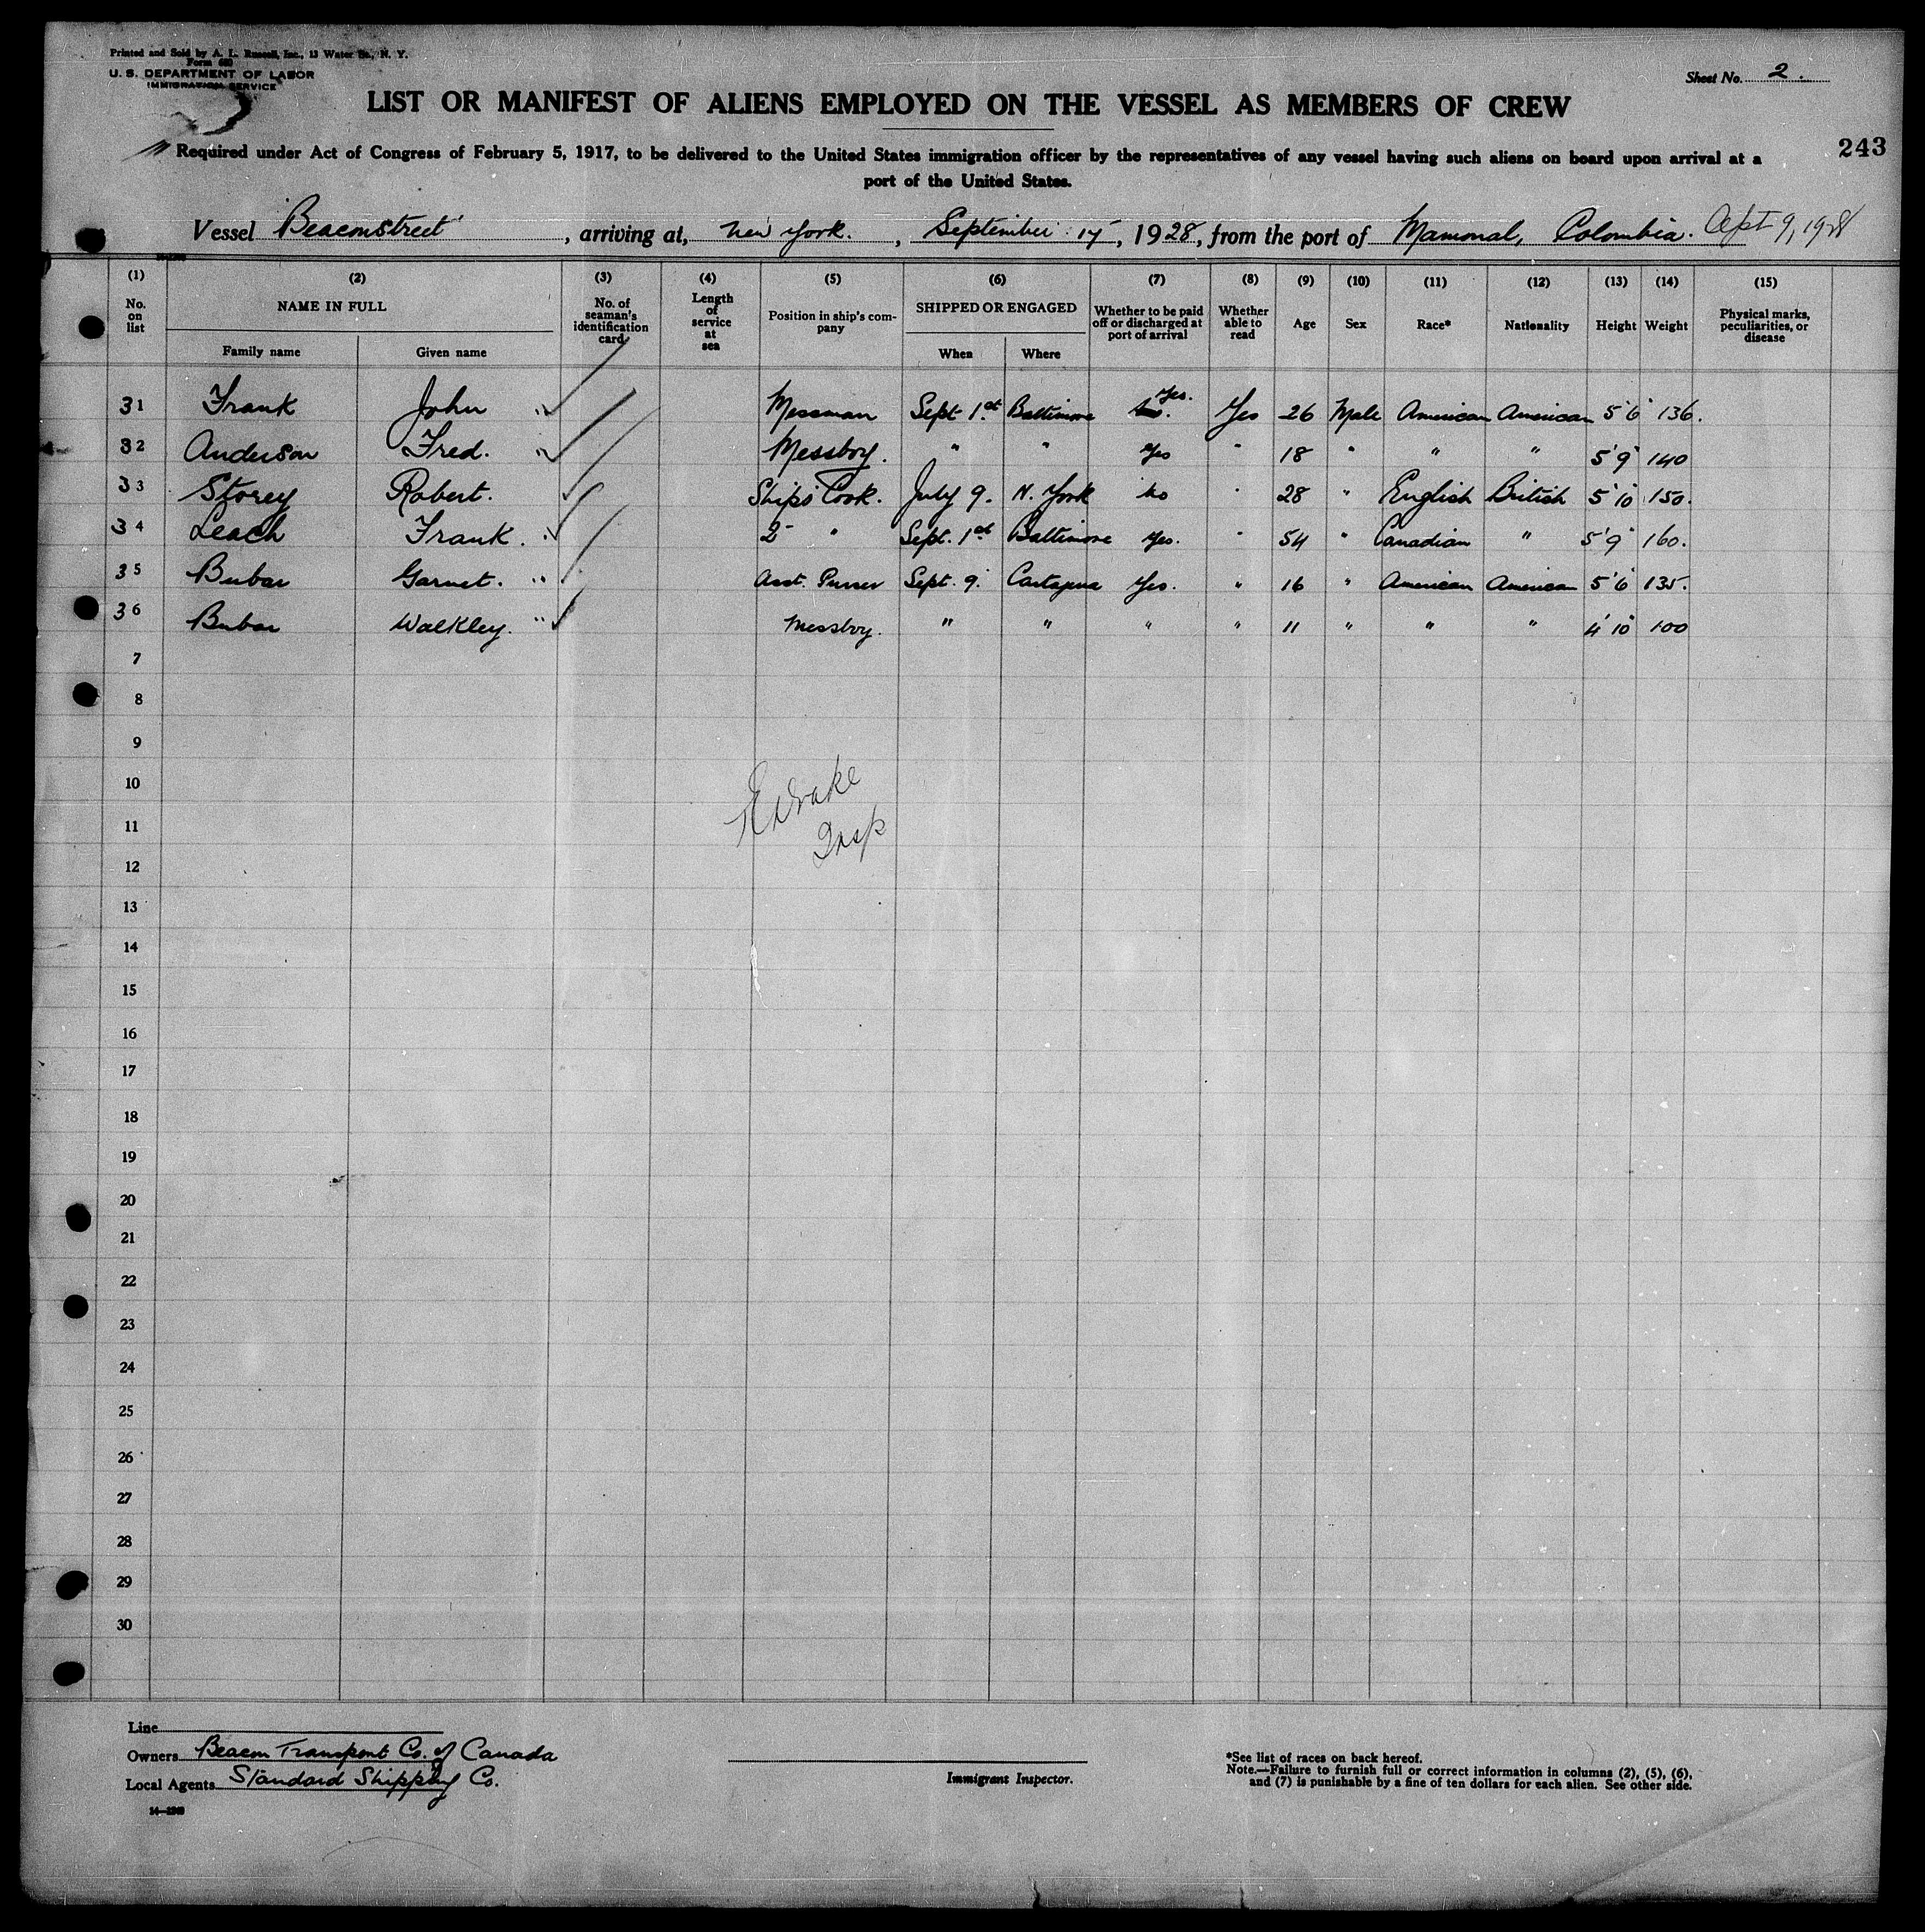 Printed and Sold by A. L. Russell, Inc., 13 Water St., N. Y.
Form 680
U. S. DEPARTMENT OF LABOR
IMMIGRATION SERVICE
Sheet No. 2.
LIST OR MANIFEST OF ALIENS EMPLOYED ON THE VESSEL AS MEMBERS OF CREW
243
Required under Act of Congress of February 5, 1917, to be delivered to the United States immigration officer by the representatives of any vessel having such aliens on board upon arrival at a
port of the United States.
Vessel "Beaconstreet", arriving at, New York., September 17, 1928, from the port of Mamonal, Colombia. Sept 9, 1928
(1) (2) (3) (4) (5) (6) (7) (8) (9) (10) (11) (12) (13) (14) (15)
No. on list NAME IN FULL No. of seaman's identification card Length of service at sea Position in ship's company SHIPPED OR ENGAGED Whether to be paid off or discharged at port of arrival Whether able to read Age Sex Race* Nationality Height Weight Physical marks, peculiarities, or disease
Family name Given name When Where
31 Frank John " Messman Sept 1st Baltimore Yes. Yes 26 Male American American 5'6" 136.
32 Anderson Fred. " Messboy. " " Yes " 18 " " " 5'9" 140
33 Storey Robert. Ships Cook. July 9. N. York No " 28 " English British 5'10" 150.
34 Leach Frank. " 2 " Sept. 1st Baltimore Yes. " 54 " Canadian " 5'9" 160.
35 Bubar Garnet. " Asst. Purser Sept. 9. Cartagena Yes. " 16 " American American 5'6" 135.
36 Bubar Walkley. " Messboy. " " " " 11 " " " 4'10" 100
7
8
9
10
11
12
13
14
15
16
17
18
19
20
21
22
23
24
25
26
27
28
29
30
Drake
Insp
Line
Owners Beacon Transport Co. of Canada
Local Agents Standard Shipping Co.
Immigrant Inspector.
*See list of races on back hereof.
Note.—Failure to furnish full or correct information in columns (2), (5), (6),
and (7) is punishable by a fine of ten dollars for each alien. See other side.